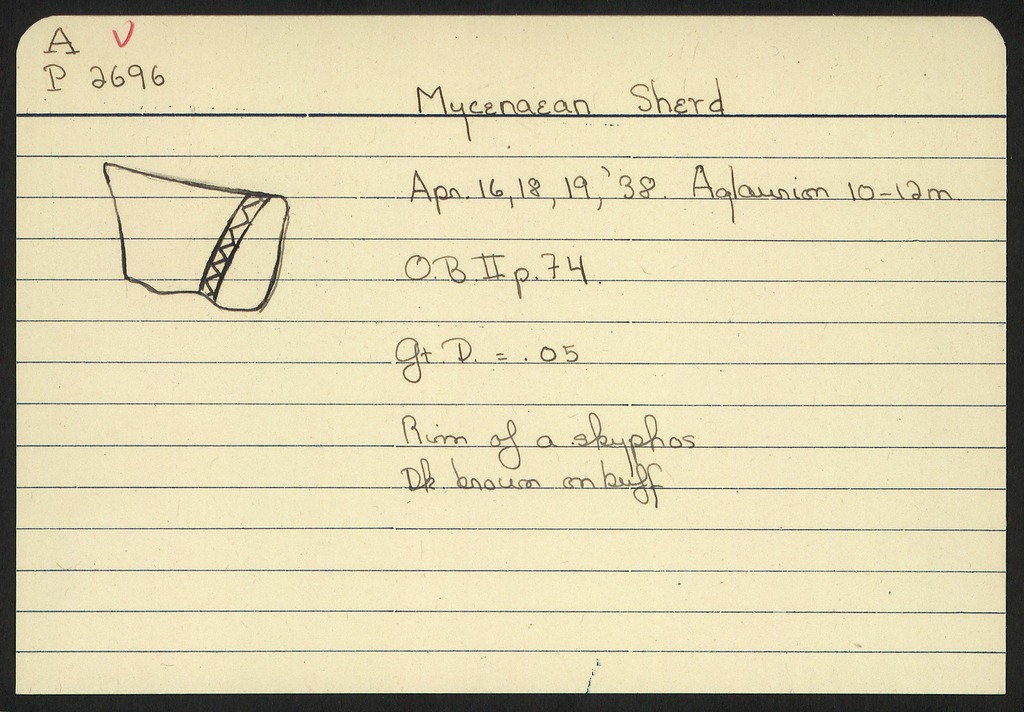 A
P 2696
Mycenaean Sherd
Apr. 16, 18, 19, '38. Aglaurion 10-12m
O.B II p. 74.
Gt. D. = .05
Rim of a skyphos
Dk. brown on buff